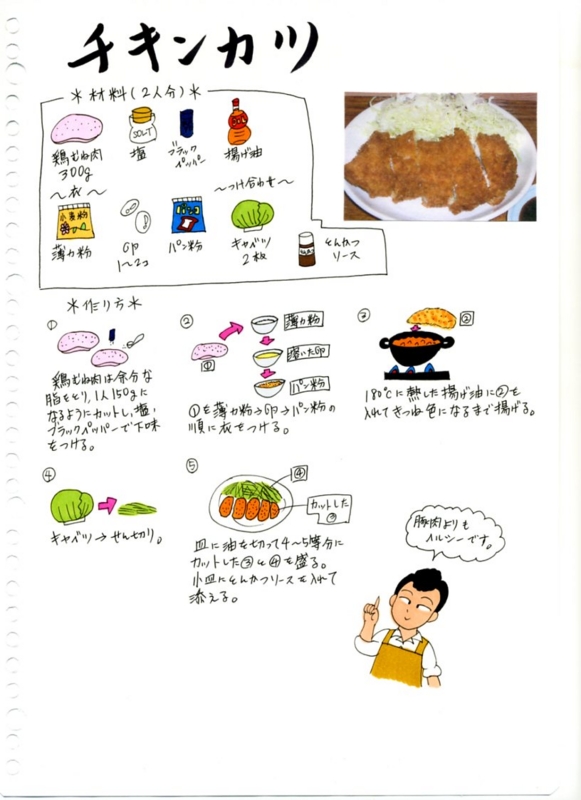 チキンカツ
＊材料(2人分)＊
鶏むね肉
300g
SOLT
塩
ブラック
ペッパー
揚げ油
〜衣〜
〜つけ合わせ〜
小麦粉
薄力粉
卵
1〜2コ
パン粉
キャベツ
2枚
とんかつ
ソース
＊作り方＊
①
鶏むね肉は余分な
脂をとり、1人150gに
なるようにカットし、塩・
ブラックペッパーで下味
をつける。
②
①
薄力粉
溶いた卵
パン粉
①を薄力粉→卵→パン粉の
順に衣をつける。
③
②
180℃に熱した揚げ油に②を
入れてきつね色になるまで揚げる。
④
キャベツ→せん切り。
⑤
④
カットした
③
皿に油を切って4〜5等分に
カットした③と④を盛る。
小皿にとんかつソースを入れて
添える。
豚肉よりも
ヘルシーです。